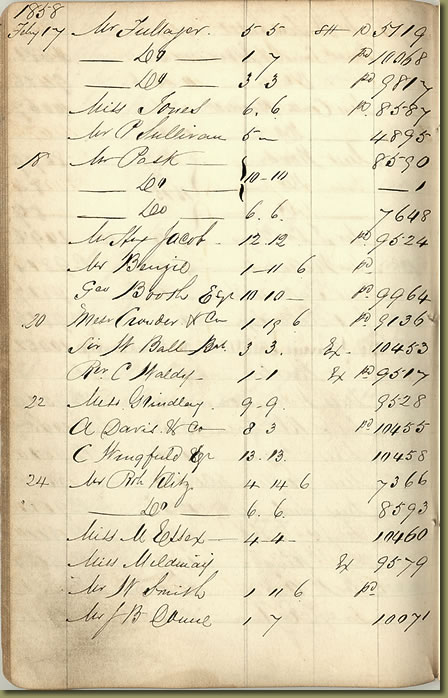 1858
Feby 17 Mr Fullager. 5 5 SH pd 5719
Do 1 7 pd 10068
Do 3 3 pd 9817
Miss Jones 6. 6. pd. 8587
Mr P Sullivan 5 - 4895
18 Mr Pask 8590
Do } 10-10 - 1
Do 6. 6. 7648
Mr Hy Jacob - 12.12 pd 9524
Mr 1-11 6 pd
Geo Booth Esqr 10 10 - pd. 9964
20 Messr Crowder & Co 1. 6 pd. 9136
Sir W Ball Bt. 3 3. Ex - 10453
Rev. C 1-1 Ex pd 9517
22 Messr. Grindlay. 9-9. 9528
A Davis & Co 8 3 pd. 10455
C Wingfield Esqr 13. 13. 10458
24 Mr 4 14 6 7366
Do 6. 6. 8593
Miss M Essex 4-4- 10460
Miss Mildmay Ex 9579
Mr W Smith 1 11 6 pd
Mr J B 1 7 10071